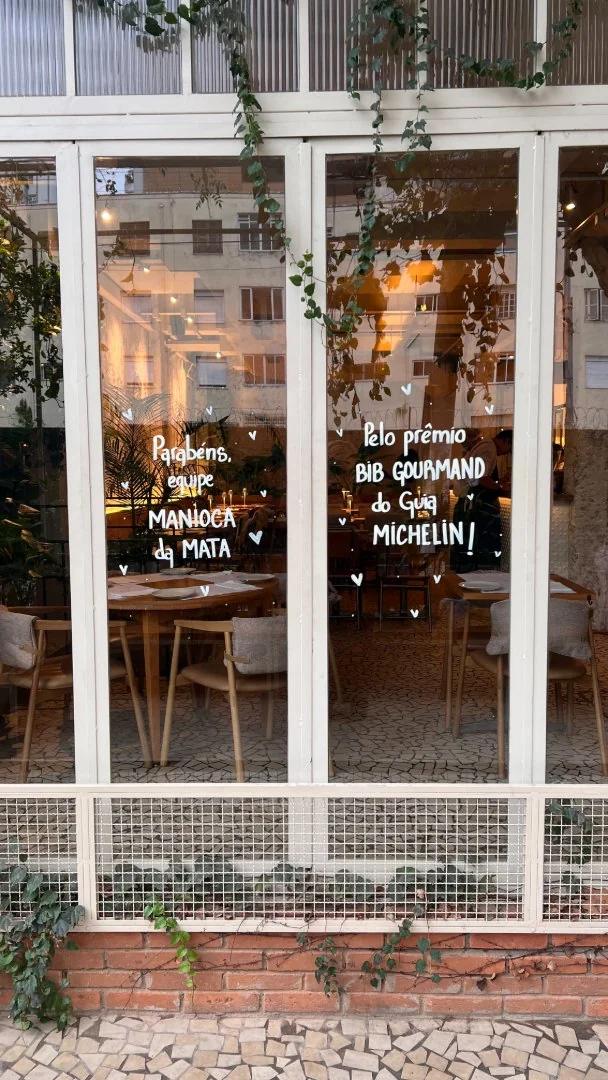 Parabéns,
equipe
MANIOCA
da MATA
Pelo prêmio
BIB GOURMAND
do Guia
MICHELIN!